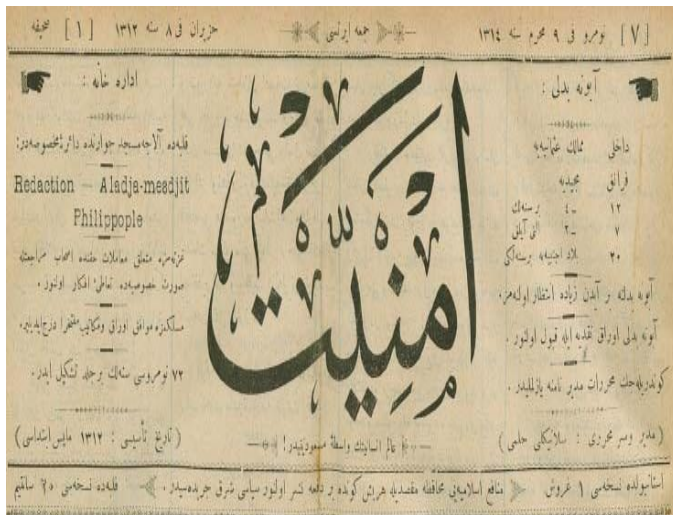 [٧] نومرو فی ٩ محرم سنه ١٣١٤
جمعه ایرتسی
حزیران فی ٨ سنه ١٣١٢ [١] صحیفه
آبونه بدلی :
داخلی ممالك عثمانیه‌یه
فرانق مجیدیه
١٢ ٤- بر سنه‌لك
٧ ٢- التی آیلق
٢٠ بلاد اجنبیه‌یه برسنه‌لكی
آبونه بدلنه بر آیدن زیاده انتظار اولنه‌مز.
آبونه بدلی اوراق نقدیه ایله قبول اولنور .
كوندریله‌جك محررات مدیر نامنه یازلملیدر.
(مدیر وسر محرری : سلانیكلی حلمی)
امنیت
عالم انسانیتك واسطهٔ مسعودیتیدر !
اداره خانه :
فلبه‌ده آلاجه‌مسجد جوارنده دائرهٔ مخصوصه‌در:
Redaction — Aladja-mesdjit
Philippople
غزته‌مزه متعلق معاملات حقنده اصحاب مراجعتله
صورت خصوصیه‌ده تعاطیٔ افكار اولنور .
مسلكمزه موافق اوراق ومكاتیب مفتخرا درج ایدیلیر.
٧٢ نومروسی سنه‌لك بر جلد تشكیل ایدر.
(تاریخ تأسیسی : ١٣١٢ مایس ابتداسی)
استانبولده نسخه‌سی ١ غروش
منافع اسلامیه‌یی محافظه مقصدیله هر اون كونده بر دفعه نشر اولنور سیاسی شرق جریده‌سیدر .
فلبه‌ده نسخه‌سی ٢٠ سانتیم